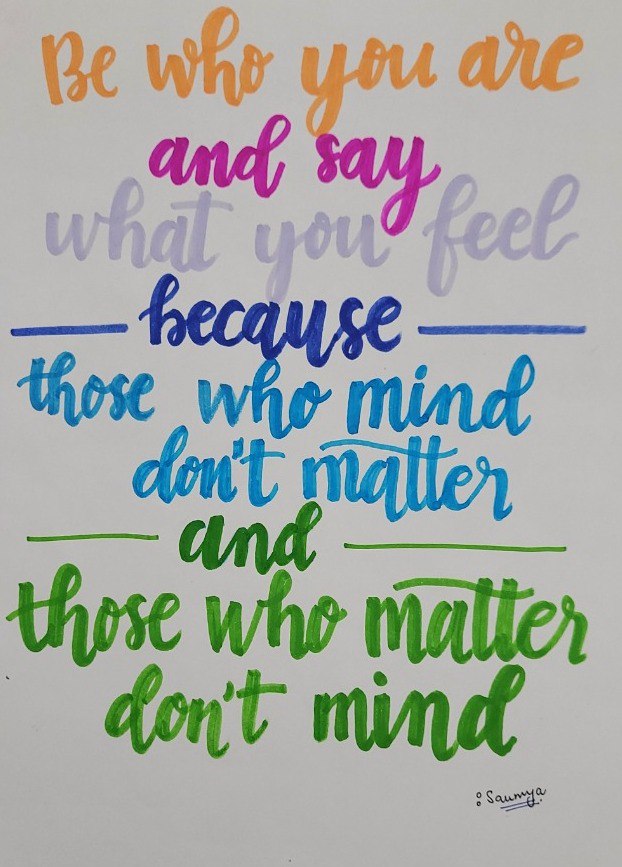 Be who you are
and say
what you feel
because
those who mind
don't matter
and
those who matter
don't mind
: Saumya